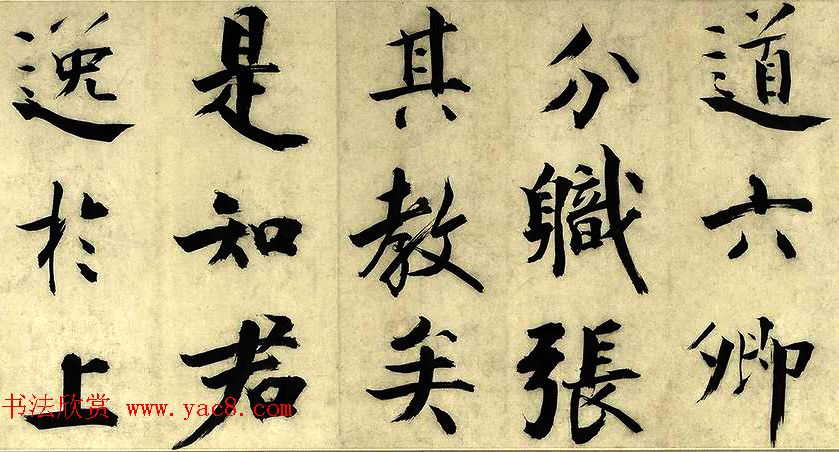 道六卿
分軄張
其教矣
是知君
逸於上
书法欣赏 www.yac8.com